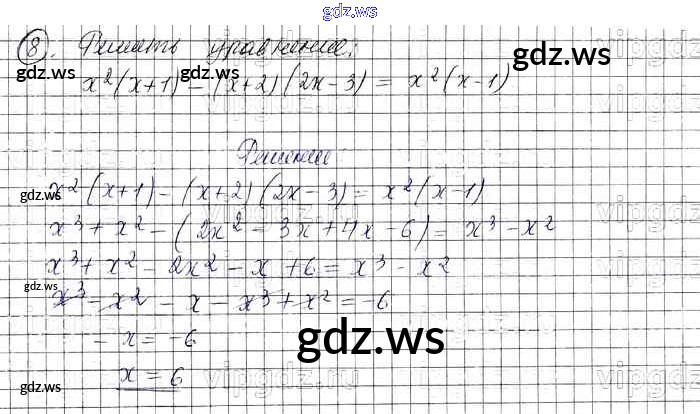 gdz.ws
8. Решить уравнение:
gdz.ws gdz.ws gdz.ws
x²(x+1) - (x+2)(2x-3) = x²(x-1)
Решение
gdz.ws
x²(x+1) - (x+2)(2x-3) = x²(x-1)
x³ + x² - (2x² - 3x + 4x - 6) = x³ - x²
x³ + x² - 2x² - x + 6 = x³ - x²
gdz.ws
x³ - x² - x - x³ + x² = -6
- x = -6
gdz.ws
x = 6
gdz.ws
vipgdz.ru
gdz.ws